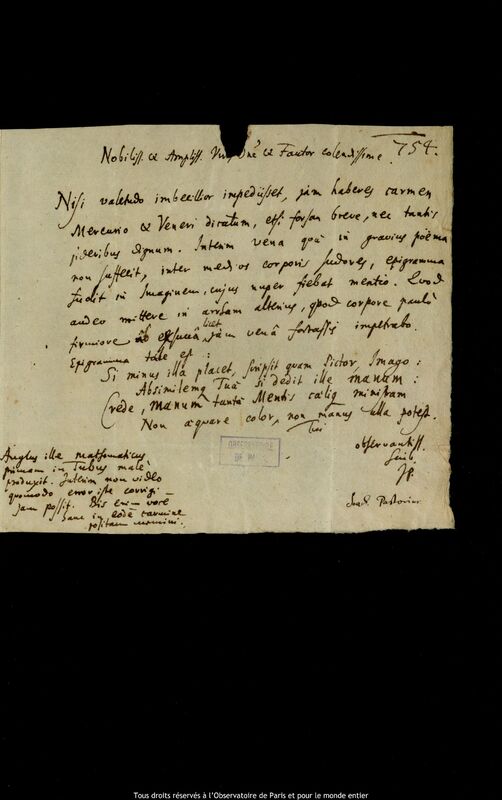 754.
Nobiliss. & Ampliss. Vir, Dne & Fautor colendissime.
Nisi valetudo imbecillior impediisset, jam haberes carmen
Mercurio & Veneri dicatum, etsi forsan breve, nec tantis
sideribus dignum. Interim vena quae in gravius poëma
non suffecit, inter medios corporis sudores, epigramma
fudit in Imaginem, cujus nuper fiebat mentio. Quod
audeo mittere in arrham alterius, quod corpore paulò
firmiore licet exsuccâ jam venâ fortassis impetrabo.
Epigramma tale est:
Si minus illa placet, scripsit quam Pictor, Imago:
Absimilemq Tuâ si dedit ille manum:
Crede, manum tantâ Mentis cœliq ministram
Non æquare color, non manus ulla potest.
Tui
observantiss.
JP.
Joach Pastorius
Anglus ille mathematicus
primam in Tubus male
produxit. Interim non video
quomodo error iste corrigi
jam possit. Bis enim voce
hanc in eodē carmine
positam memini.
OBSERVATOIRE